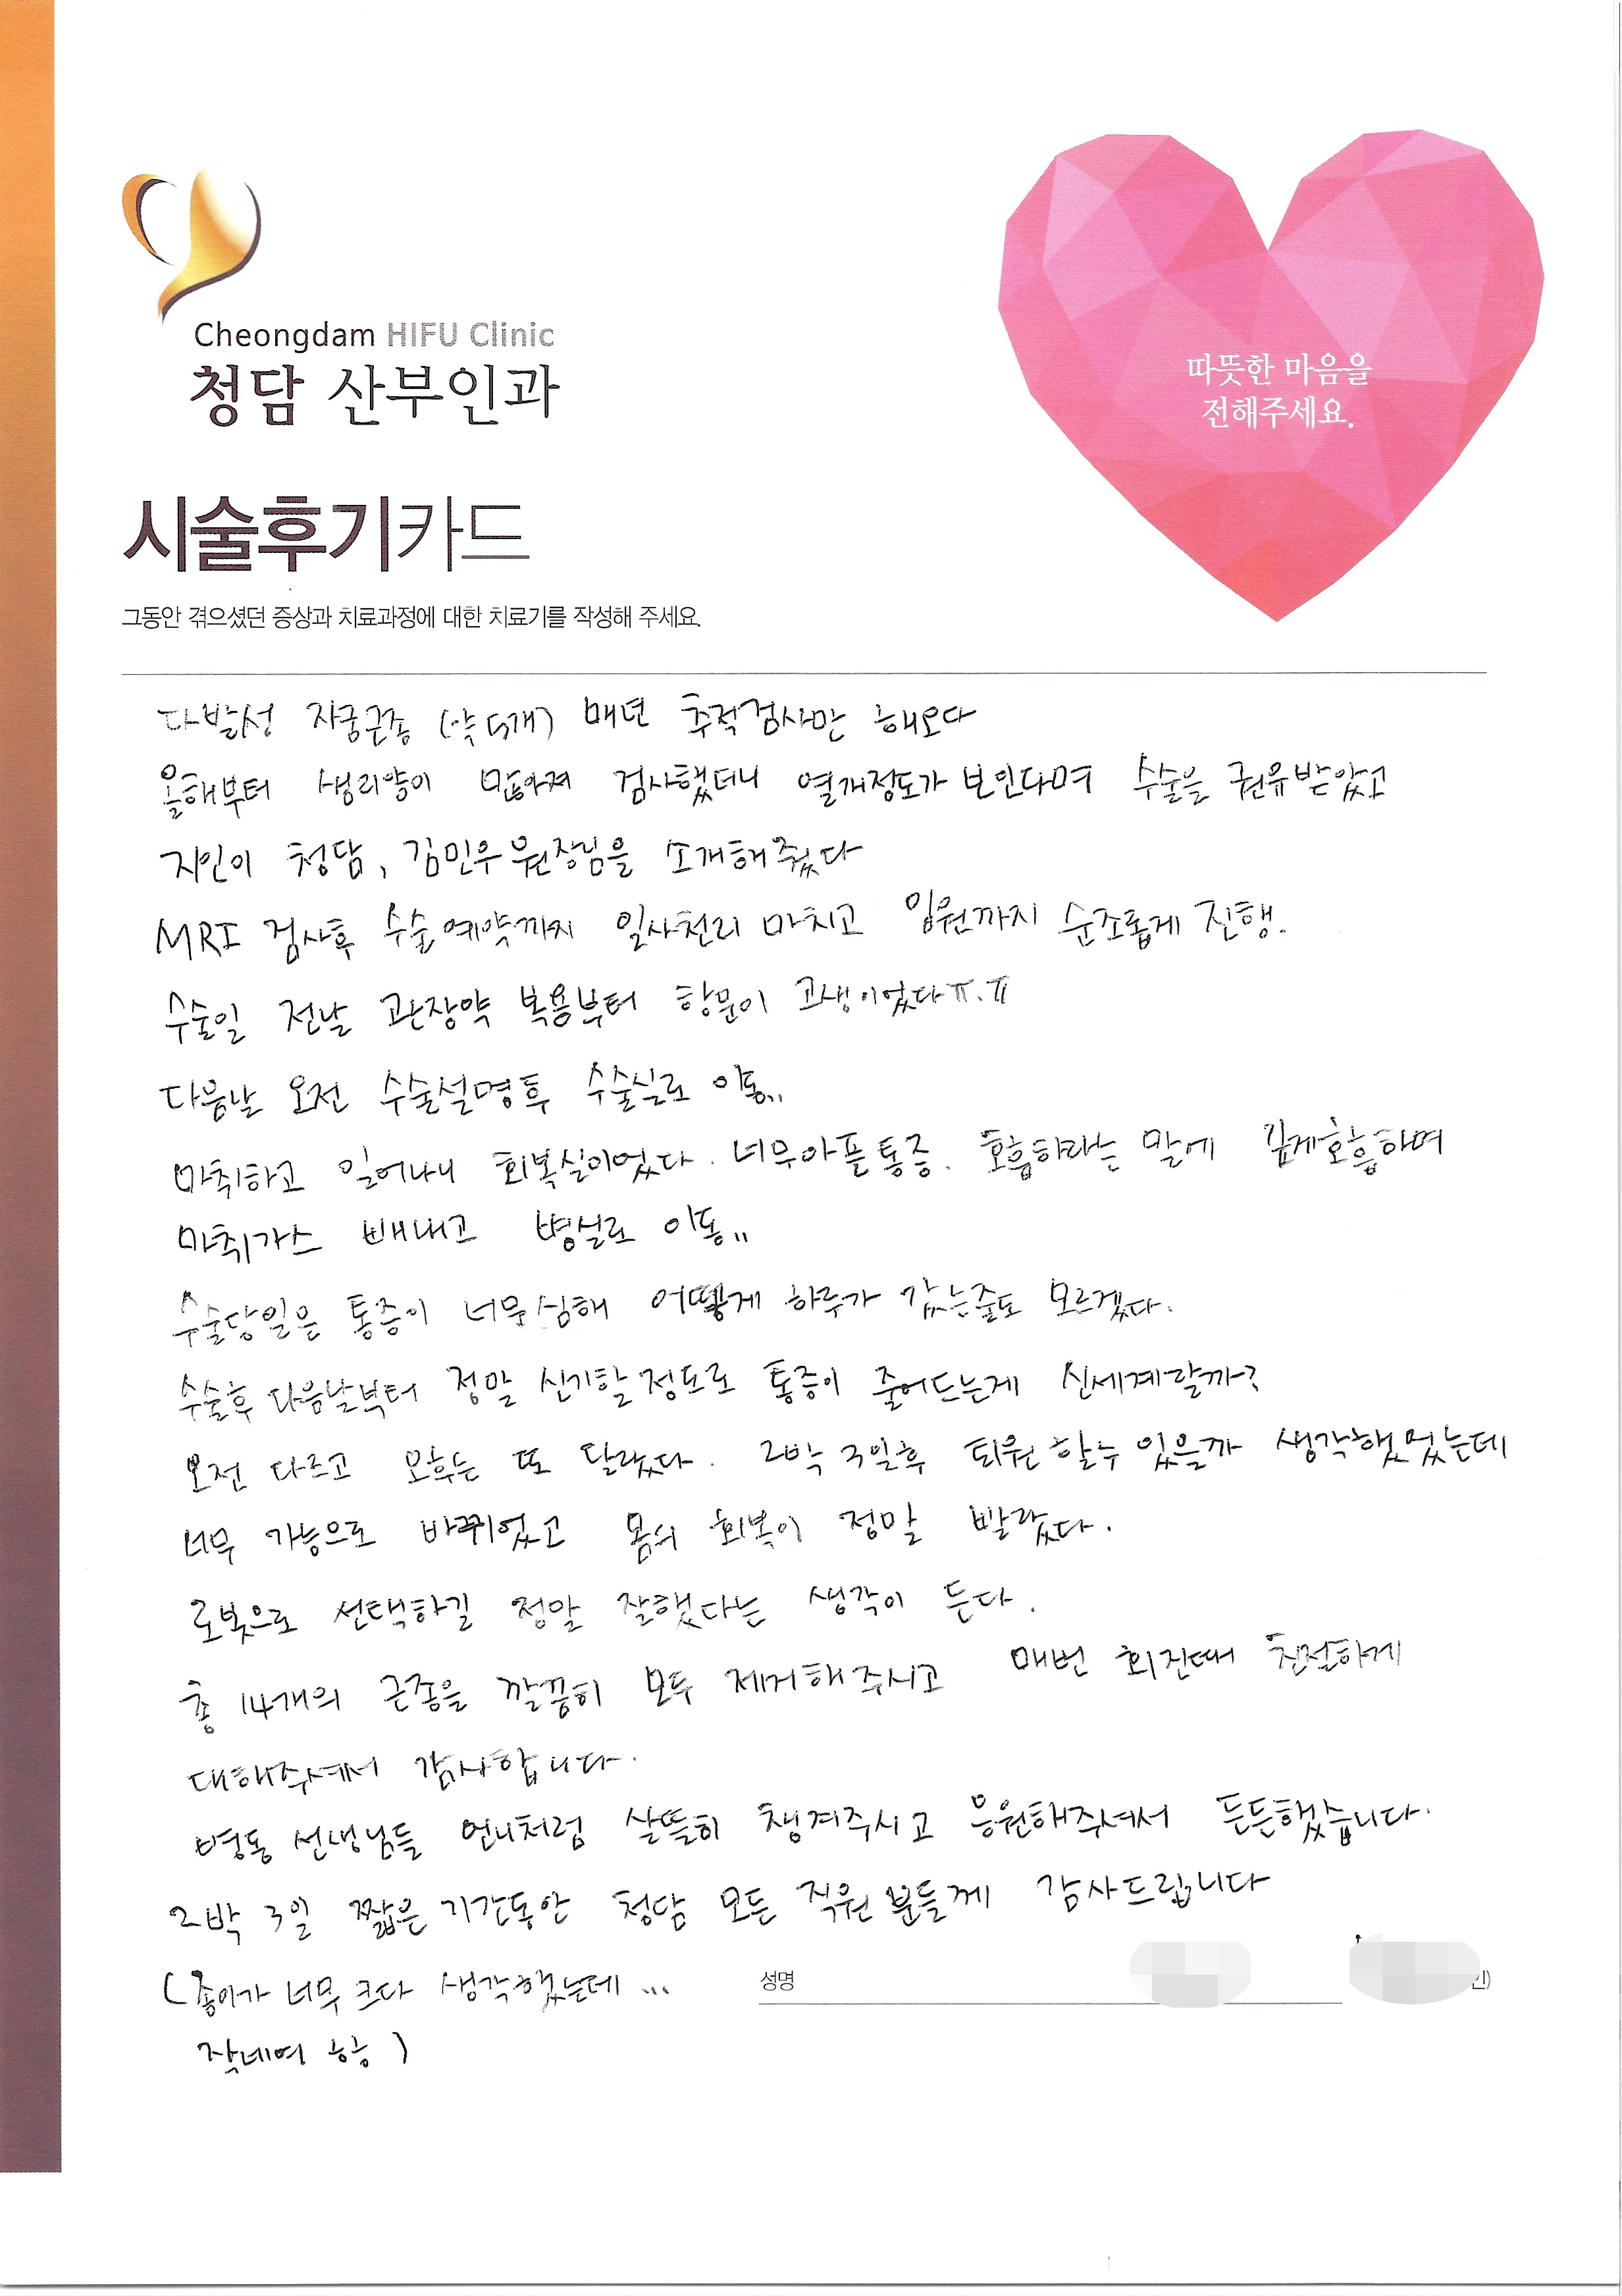 Cheongdam HIFU Clinic
청담 산부인과
따뜻한 마음을
전해주세요.
시술후기카드
그동안 겪으셨던 증상과 치료과정에 대한 치료기를 작성해 주세요.
다발성 자궁근종 (약 5개) 매년 추적검사만 해오다
올해부터 생리양이 많아져 검사했더니 열개정도가 보인다며 수술을 권유받았고
지인이 청담, 김민우원장님을 소개해줬다
MRI 검사후 수술예약까지 일사천리 마치고 입원까지 순조롭게 진행.
수술일 전날 관장약 복용부터 항문이 고생이었다ㅠ.ㅠ
다음날 오전 수술설명후 수술실로 이동..
마취하고 일어나니 회복실이었다. 너무아픈통증. 호흡하라는 말에 깊게호흡하며
마취가스 빼내고 병실로 이동..
수술당일은 통증이 너무심해 어떻게 하루가 갔는줄도 모르겠다.
수술후 다음날부터 정말 신기할정도로 통증이 줄어드는게 신세계랄까?
오전 다르고 오후는 또 달랐다. 2박 3일후 퇴원할수 있을까 생각했었는데
너무 가능으로 바뀌었고 몸의 회복이 정말 빨랐다.
로봇으로 선택하길 정말 잘했다는 생각이 든다.
총 14개의 근종을 깔끔히 모두 제거해주시고 매번 회진때 친절하게
대해주셔서 감사합니다.
병동 선생님들 언니처럼 살뜰히 챙겨주시고 응원해주셔서 든든했습니다.
2박 3일 짧은 기간동안 청담 모든 직원분들께 감사드립니다
(종이가 너무 크다 생각했는데...
작네여 하하)
성명 인)